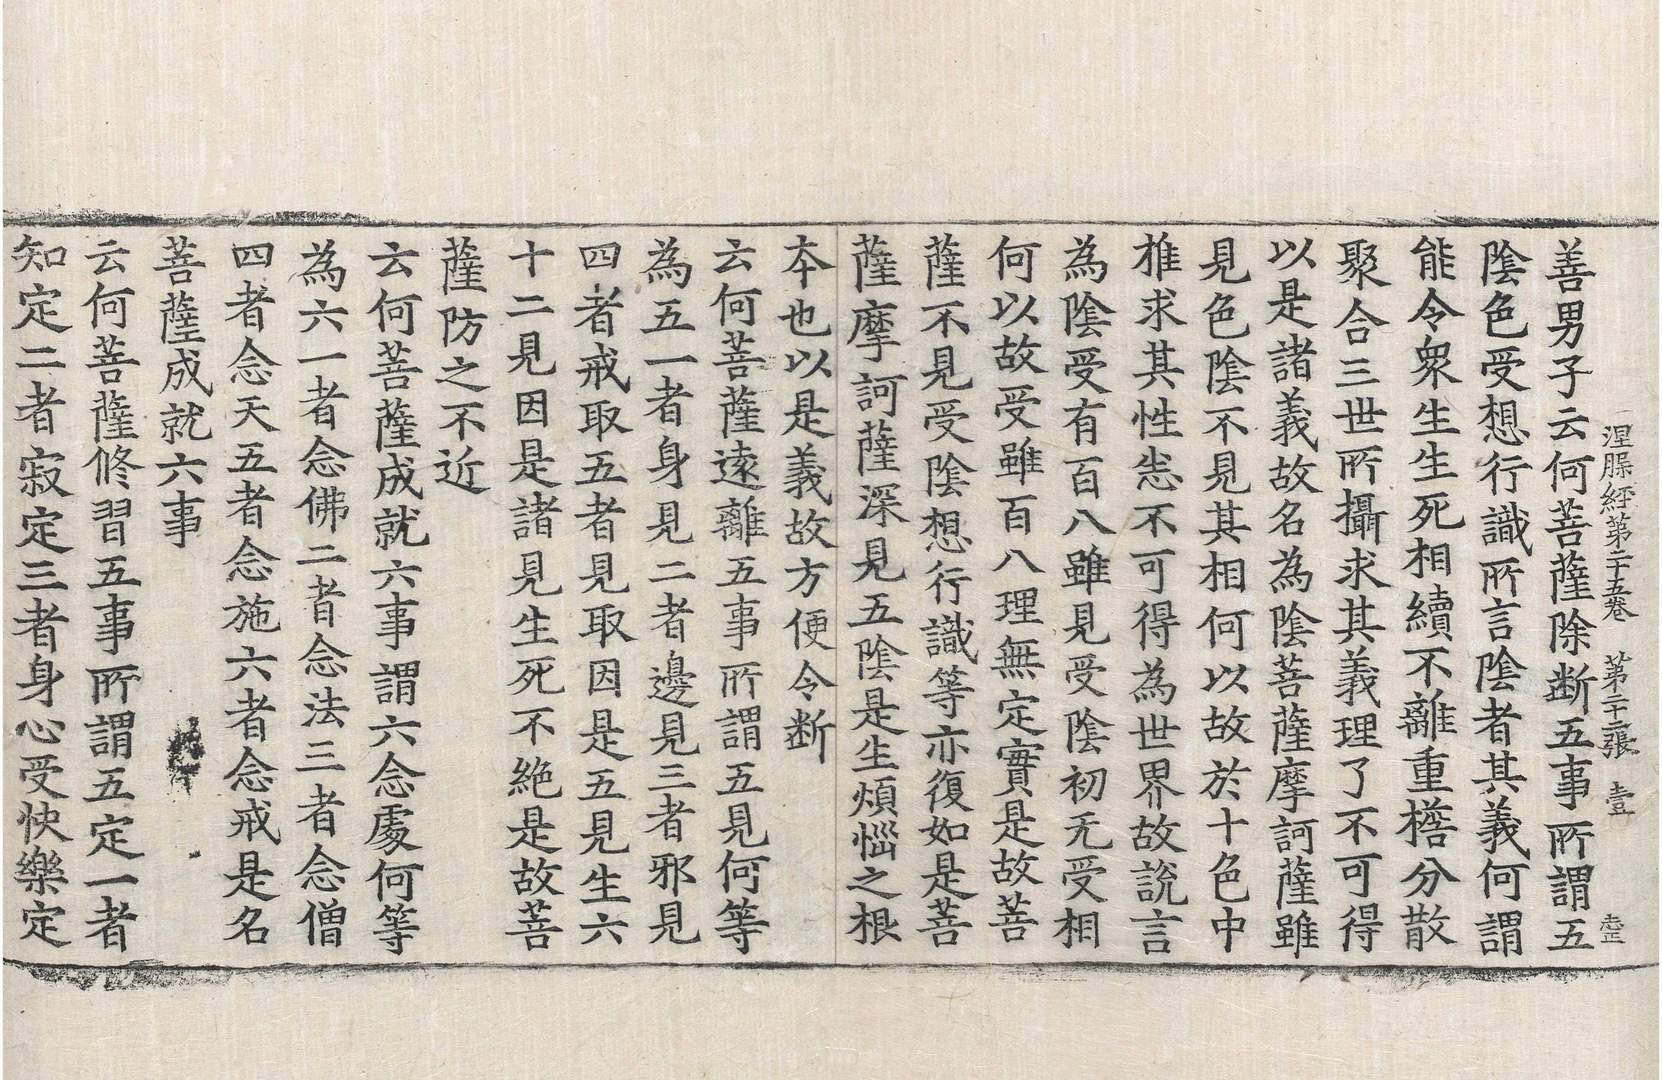 涅槃經第二十五卷　第二十二張　壹
善男子云何菩薩除断五事所謂五
陰色受想行識所言陰者其義何謂
能令衆生生死相續不離重檐分散
聚合三世所攝求其義理了不可得
以是諸義故名為陰菩薩摩訶薩雖
見色陰不見其相何以故於十色中
推求其性悉不可得為世界故說言
為陰受有百八雖見受陰初无受相
何以故受雖百八理無定實是故菩
薩不見受陰想行識等亦復如是菩
薩摩訶薩深見五陰是生煩惱之根
本也以是義故方便令断
云何菩薩遠離五事所謂五見何等
為五一者身見二者邊見三者邪見
四者戒取五者見取因是五見生六
十二見因是諸見生死不絶是故菩
薩防之不近
云何菩薩成就六事謂六念處何等
為六一者念佛二者念法三者念僧
四者念天五者念施六者念戒是名
菩薩成就六事
云何菩薩修習五事所謂五定一者
知定二者寂定三者身心受快樂定